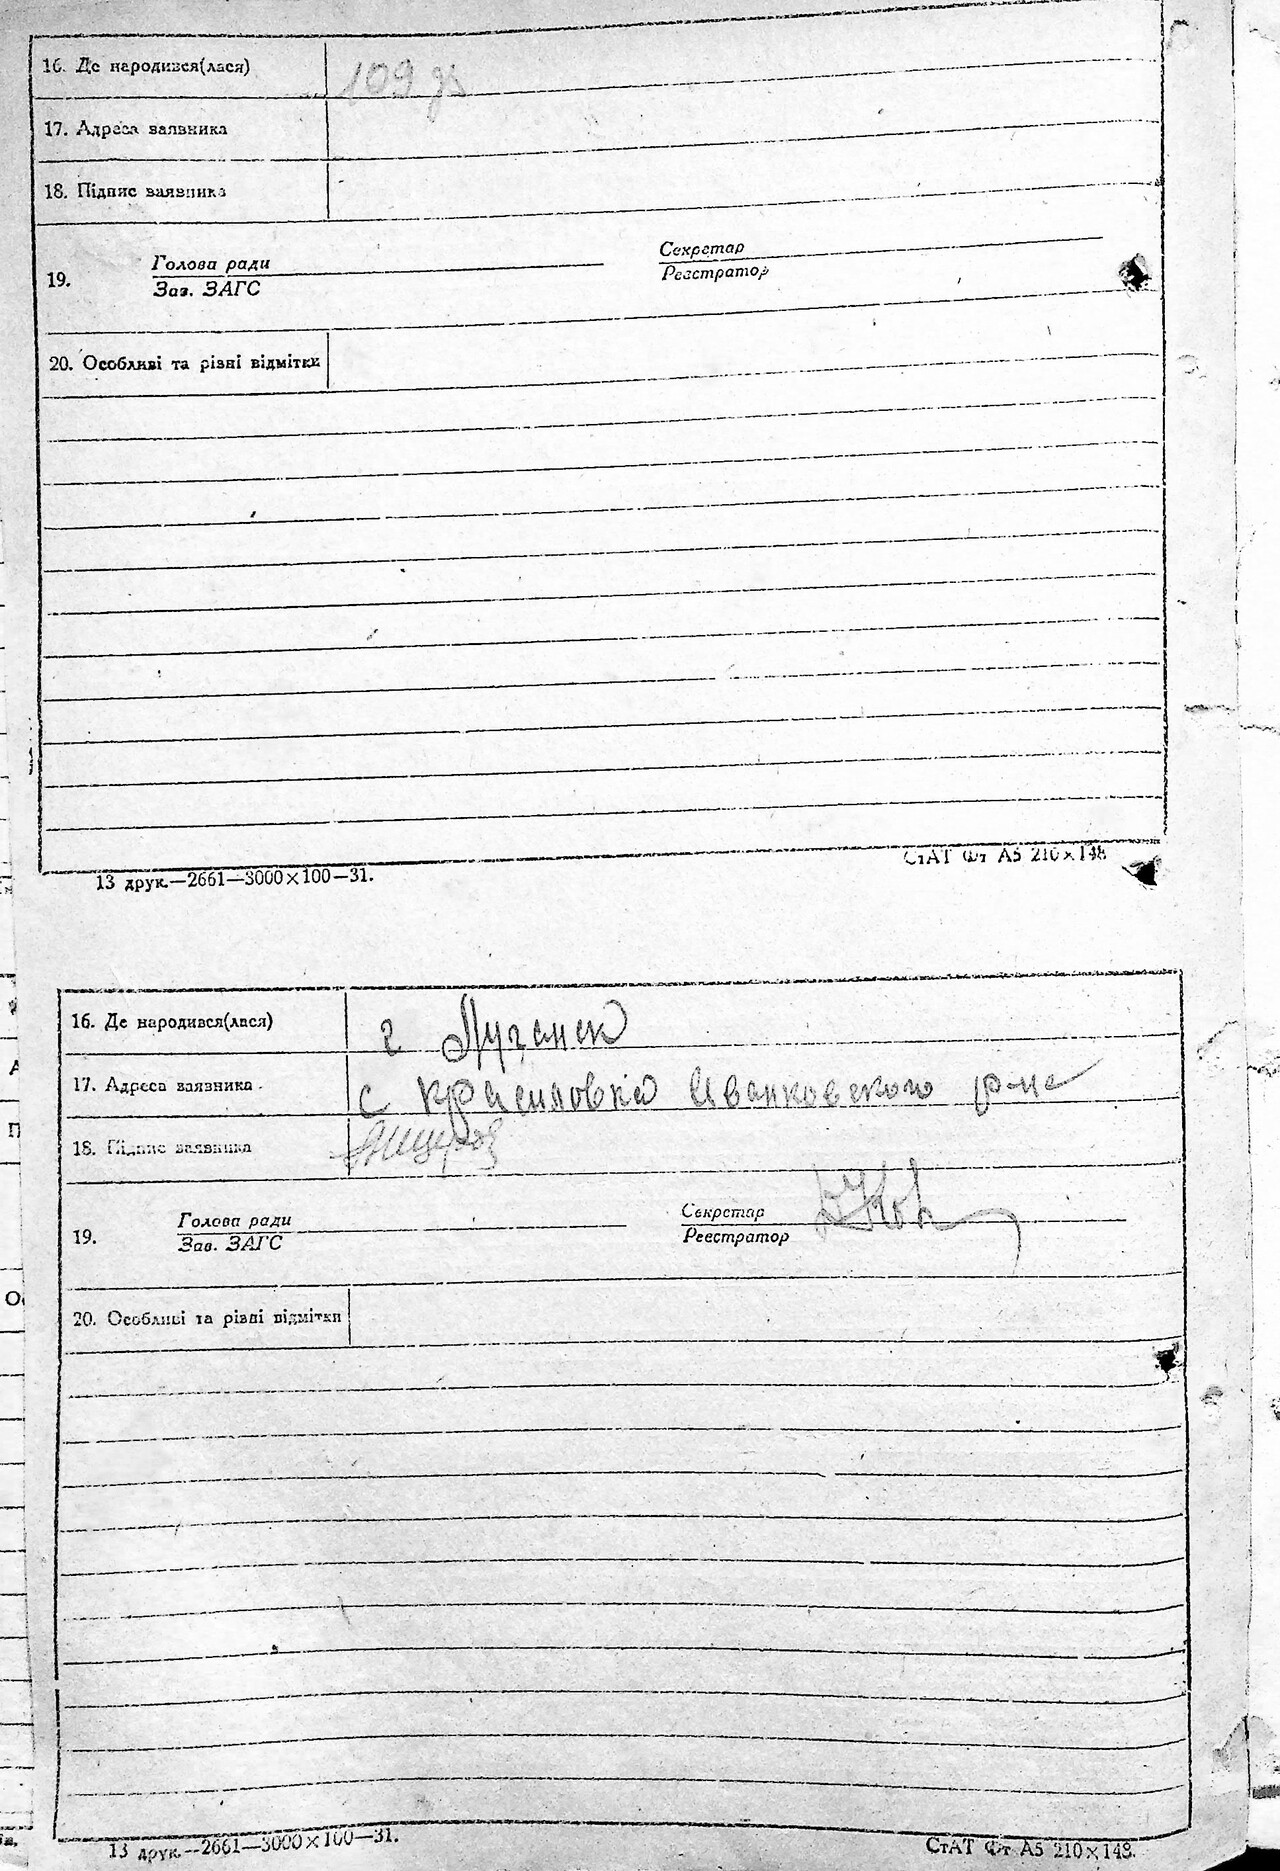 16. Де народився(лася)
109
17. Адреса заявника
18. Підпис заявника
19. Голова ради Секретар
Зав. ЗАГС Реєстратор
20. Особливі та різні відмітки
СтАТ Фт А5 210×148
13 друк.—2661—3000×100—31.
16. Де народився(лася) г Луганск
17. Адреса заявника с Красиловка Иванковского р-на
18. Підпис заявника
19. Голова ради Секретар
Зав. ЗАГС Реєстратор
20. Особливі та різні відмітки
13 друк.—2661—3000×100—31. СтАТ Фт А5 210×148.